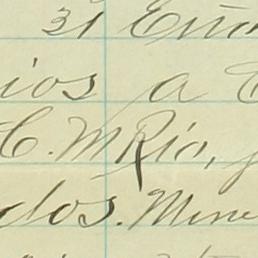 31
ios a
C. M Rio,
dos. Mine